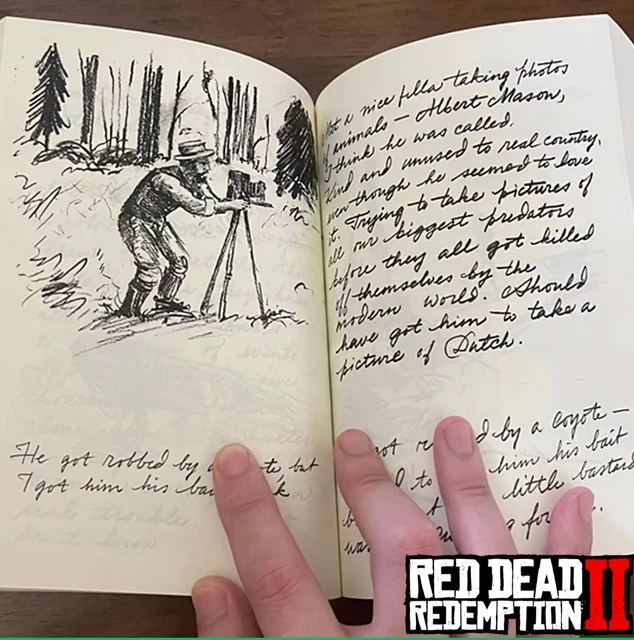 He got robbed by a te but
I got him his ba k
Met a nice fella taking photos
of animals – Albert Mason,
I think he was called.
Kind and unused to real country,
even though he seemed to love
it. Trying to take pictures of
all our biggest predators
before they all got killed
off themselves by the
modern world. Should
have got him to take a
picture of Dutch.
got d by a coyote –
to him his bait
little bastard
RED DEAD
REDEMPTION II